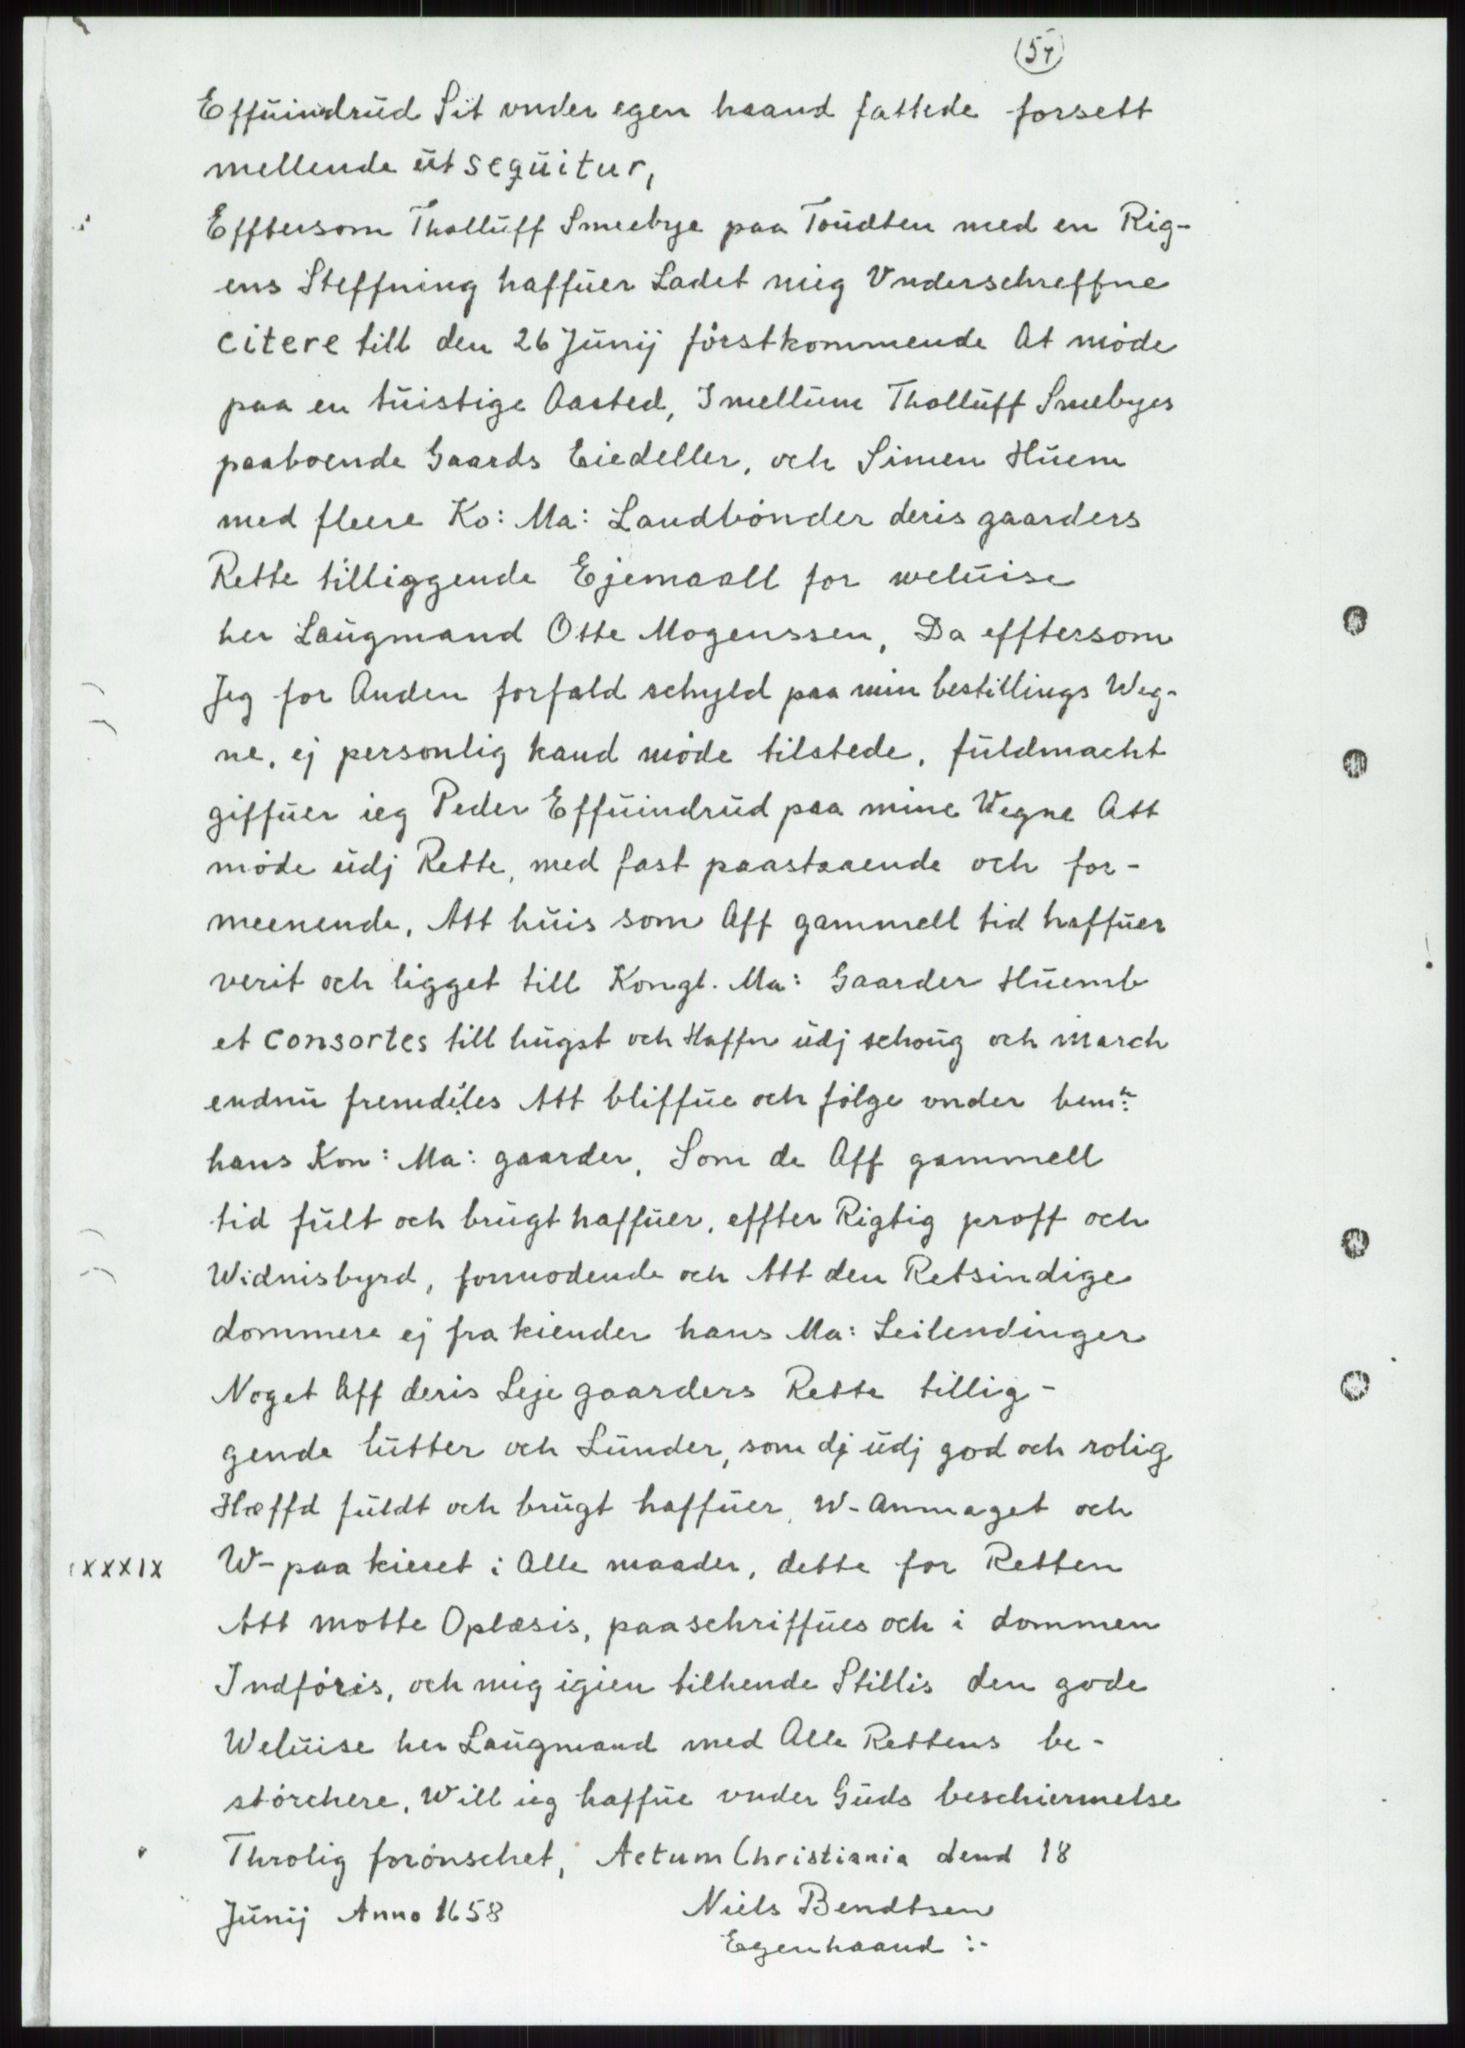 (57)
Effuindrud Sit vnder egen haand fattede forsett
mellende ut sequitur,
Efftersom Tholluff Smeebye paa Toudten med en Rig-
ens Steffning haffuer Ladet mig Vnderschreffne
citere till den 26 Junij förstkommende At möde
paa en tuistige Aasted, Imellum Tholluff Smebyes
paaboende Gaards Eiedeller, och Simen Huem
med fleere Ko: Ma: Landbönder deris gaarders
Rette tilliggende Ejemaall for weluise
her Laugmand Otte Mogenssen, Da efftersom
Jeg for Anden forfald schyld paa min bestillings Weg-
ne, ej personlig kand möde tilstede, fuldmacht
giffuer ieg Peder Effuindrud paa mine Wegne Att
möde udj Rette, med fast paastaaende och for-
meenende, Att huis som Aff gammell tid haffuer
verit och ligget till Kongl. Ma: Gaarder Huemb
et consortes till hugst och Haffn udj schoug och march
endnu fremdiles Att bliffue och fölge vnder bemte
hans Kon: Ma: gaarder, Som de Aff gammell
tid fult och brugt haffuer, effter Rigtig proff och
Widnisbyrd, formodende och Att den Retsindige
dommere ej fra kiender hans Ma: Leilendinger
Noget Aff deris Leje gaarders Rette tillig-
gende lutter och Lunder, som dj udj god och rolig
Hæffd fuldt och brugt haffuer, W-Anmaget och
XXXIX W-paa kieret i Alle maader, dette for Retten
Att motte Oplæsis, paaschriffues och i dommen
Indföris, och mig igien tilhende Stillis den gode
Weluise her Laugmand med Alle Rettens be-
störchere, Will ieg haffue vnder Guds beschiermelse
Throlig forönschet, Actum Christiania dend 18
Junij Anno 1658 Niels Bendtsen
Egenhaand :-